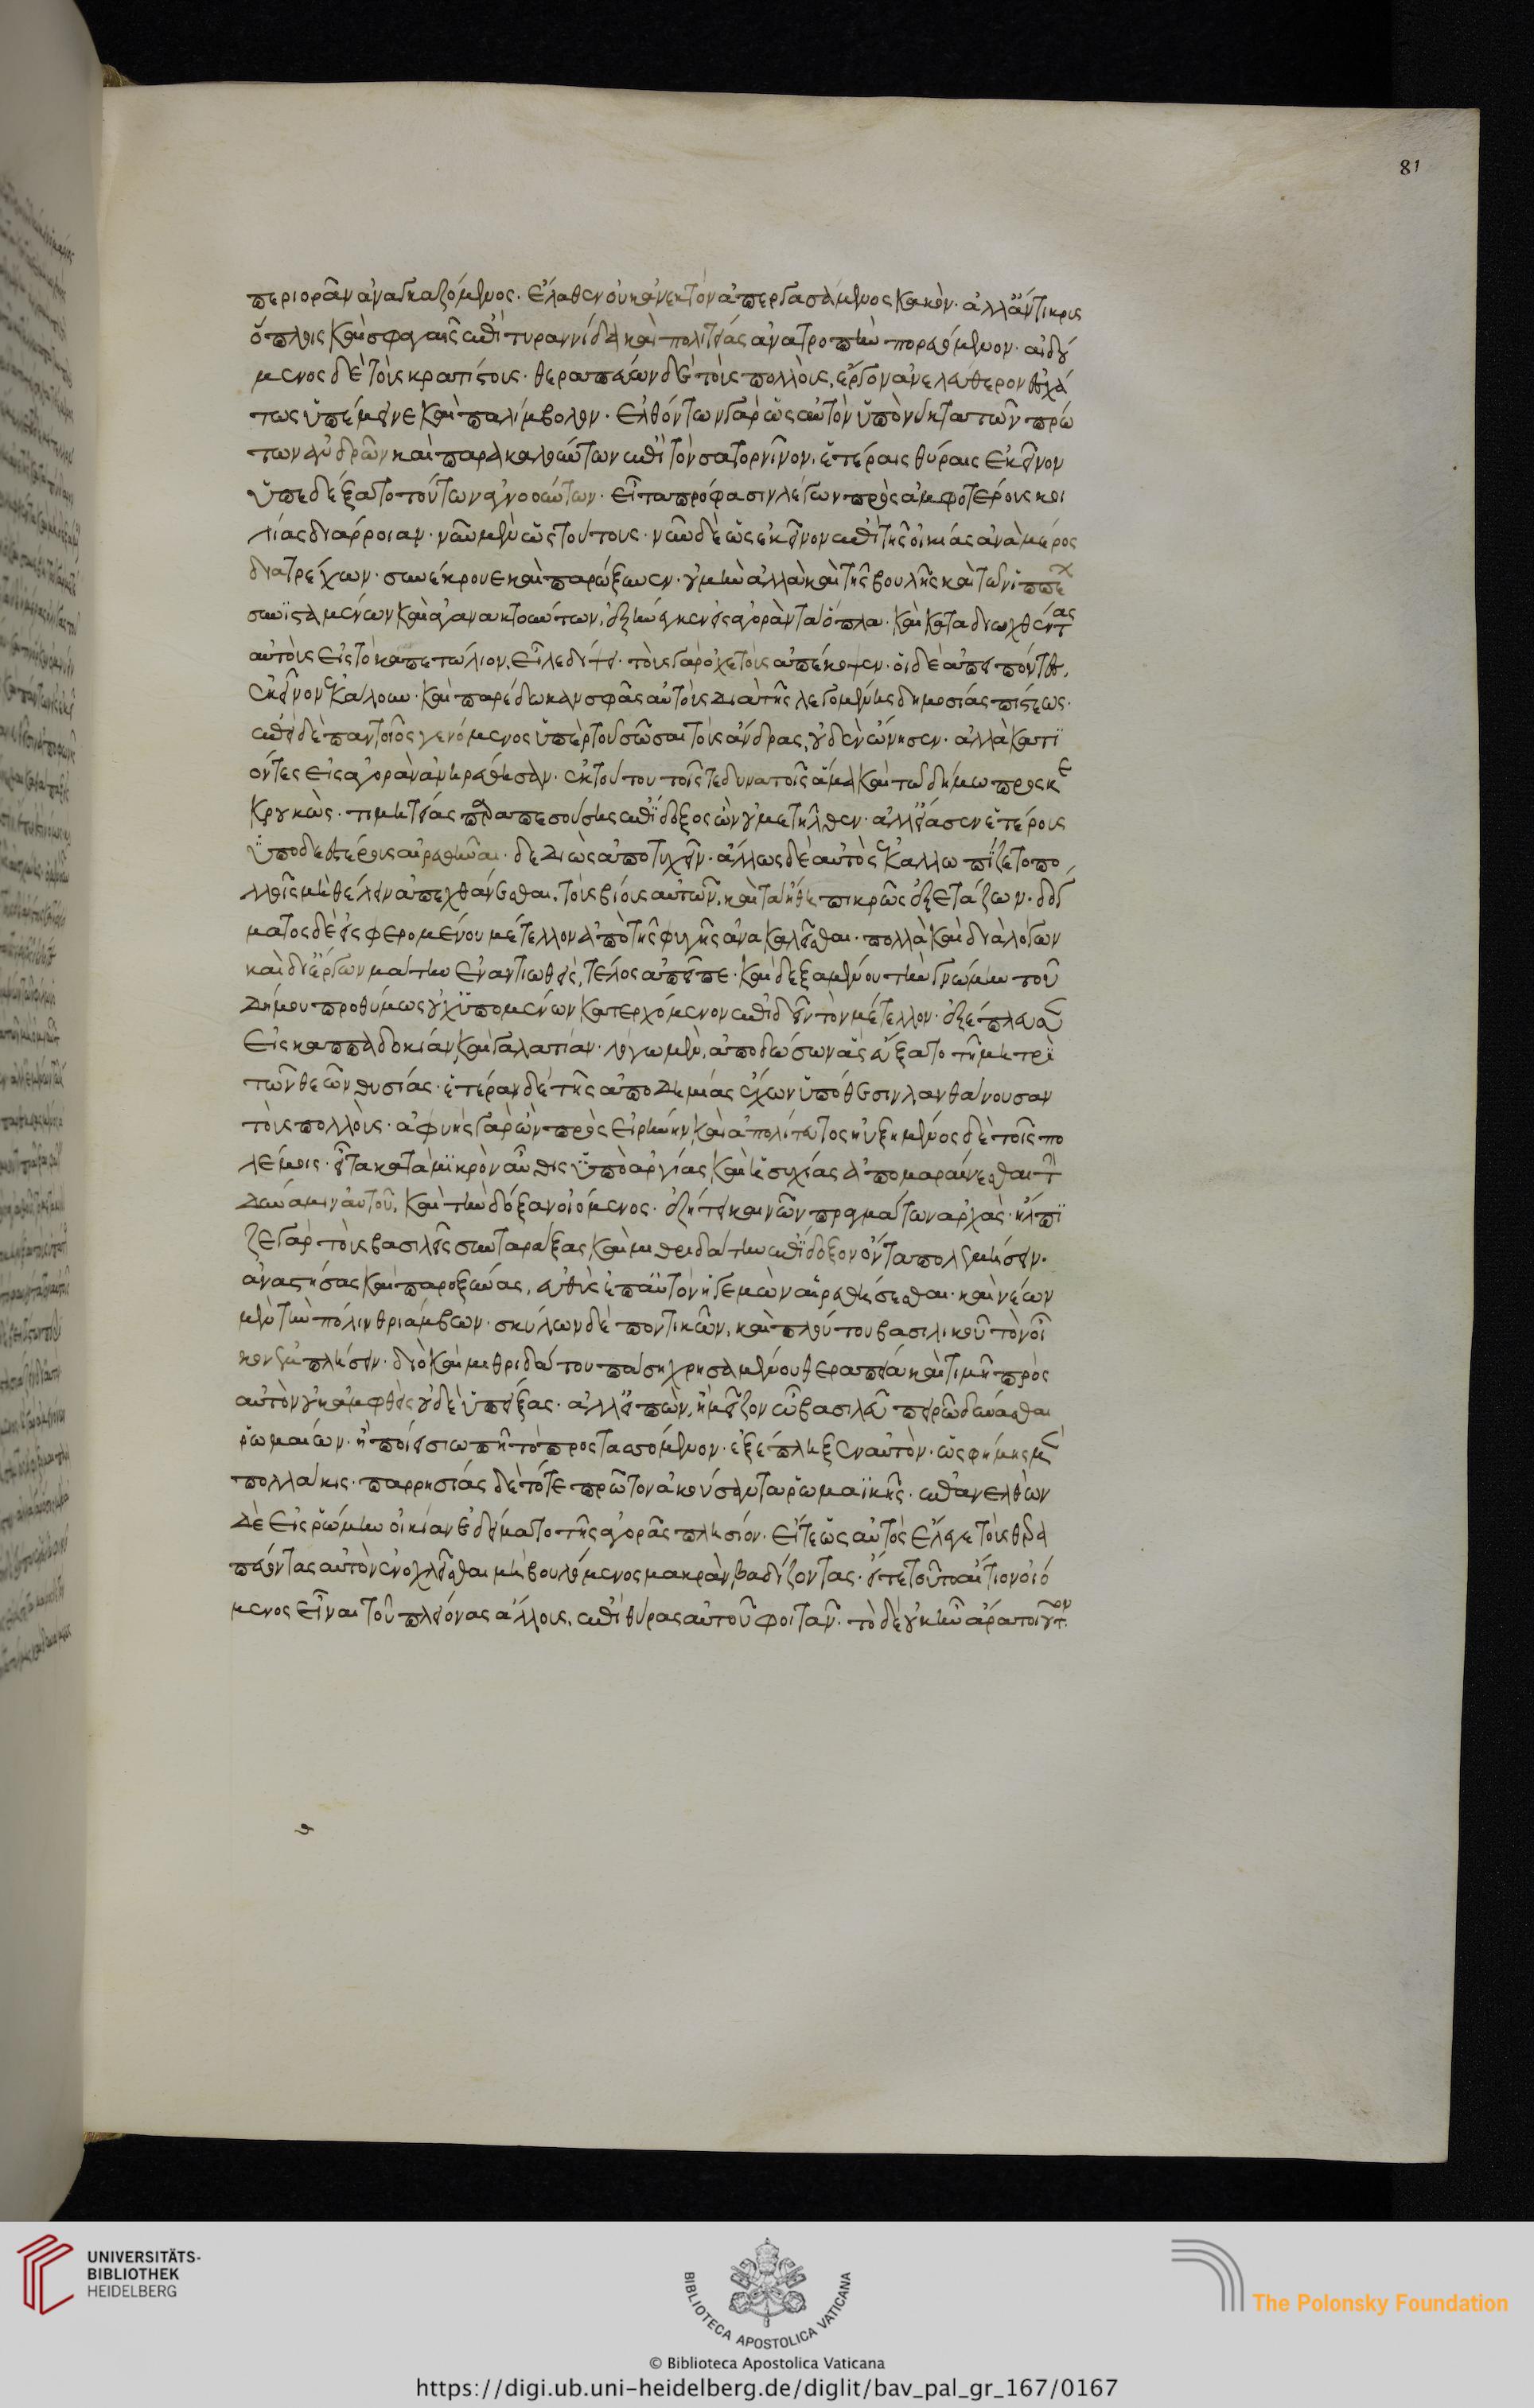 81
περιορᾶν ἀναγκαζόμενος· ἔλαθεν οὐκ ἀνεκτὸν ἀπεργασάμενος κακὸν· ἀλλ' ἄντικρις
ὅπλοις καὶ σφαγαῖς ἐπὶ τυραννίδα καὶ πολιτείας ἀνατροπὴν πορευόμενον· αἰδού
μενος δὲ τοὺς κρατίστους· θεραπεύων δὲ τοὺς πολλοὺς, ἔργον ἀνελεύθερον ἐσχά
τως ὑπέμεινε καὶ παλίμβολον· ἐλθόντων γὰρ ὡς αὐτὸν ὑπὸ νύκτα τῶν πρώ
των ἀνδρῶν καὶ παρακαλούντων ἐπὶ τὸν σατορνῖνον, ἑτέραις θύραις ἐκεῖνον
ὑπεδέξατο τούτων ἀγνοούντων· εἶτα πρόφασιν λέγων πρὸς ἀμφοτέρους κοι
λίας διάρροιαν· νῦν μὲν ὡς τούτους· νῦν δὲ ὡς ἐκεῖνον ἐπὶ τῆς οἰκίας ἀνὰ μέρος
διατρέχων· συνέκρουε καὶ παρώξυνεν· οὐ μὴν ἀλλὰ καὶ τῆς βουλῆς καὶ τῶν ἱππέ
συνισταμένων καὶ ἀγανακτούντων, ἐξήνεγκεν εἰς ἀγορὰν τὰ ὅπλα· καὶ καταδιωχθέντας
αὐτοὺς εἰς τὸ καπετώλιον, εἷλε δίψει· τοὺς γὰρ ὀχετοὺς ἀπέκοψεν· οἱ δὲ ἀπειπόντες,
ἐκεῖνον ἐκάλουν· καὶ παρέδωκαν σφᾶς αὐτοὺς διὰ τῆς λεγομένης δημοσίας πίστεως·
ἐπεὶ δὲ παντοῖος γενόμενος ὑπὲρ τοῦ σῶσαι τοὺς ἄνδρας, οὐδὲν ὤνησεν· ἀλλὰ κατι
όντες εἰς ἀγορὰν ἀνῃρέθησαν· ἐκ τούτου τοῖς τε δυνατοῖς ἅμα καὶ τῷ δήμῳ προσκε
κρουκὼς· τιμητείας παραπεσούσης ἐπίδοξος ὢν οὐ μετῆλθεν· ἀλλ' εἴασεν ἑτέρους
ὑποδεεστέρους αἱρεθῆναι· δεδιὼς ἀποτυχεῖν· ἄλλως δὲ αὐτὸς ἐκαλλωπίζετο πο
λλοῖς μὴ θέλειν ἀπεχθάνεσθαι, τοὺς βίους αὐτῶν, καὶ τὰ ἤθη πικρῶς ἐξετάζων· δόγ
ματος δὲ εἰσφερομένου μέτελλον ἀπὸ τῆς φυγῆς ἀνακαλεῖσθαι· πολλὰ καὶ διὰ λόγων
καὶ δι' ἔργων μάτην ἐναντιωθεὶς, τέλος ἀπεῖπε· καὶ δεξαμένου τὴν γνώμην τοῦ
δήμου προθύμως οὐχ ὑπομένων κατερχόμενον ἐπιδεῖν τὸν μέτελλον· ἐξέπλευσ
εἰς καππαδοκίαν καὶ γαλατίαν· λόγῳ μὲν, ἀποδώσων ἃς εὔξατο τῇ μητρὶ
τῶν θεῶν θυσίας· ἑτέραν δὲ τῆς ἀποδημίας ἔχων ὑπόθεσιν λανθάνουσαν
τοὺς πολλοὺς· ἀφυὴς γὰρ ὢν πρὸς εἰρήνην καὶ ἀπολίτευτος ηὐξημένος δὲ τοῖς πο
λέμοις· εἶτα κατὰ μικρὸν αὖθις ὑπὸ ἀργίας καὶ ἡσυχίας ἀπομαραίνεσθαι τὴν
δύναμιν αὐτοῦ, καὶ τὴν δόξαν οἰόμενος· ἐζήτει καινῶν πραγμάτων ἀρχὰς· ἤλπι
ζε γὰρ τοὺς βασιλεῖς συνταράξας, καὶ μιθριδάτην ἐπίδοξον ὄντα πολεμήσειν·
ἀναστήσας καὶ παροξύνας, εὐθὺς ἐπ' αὐτὸν ἡγεμὼν αἱρεθήσεσθαι· καὶ νέων
μὲν τὴν πόλιν θριάμβων· σκύλων δὲ ποντικῶν, καὶ πλούτου βασιλικοῦ τὸν οἶ
κον ἐμπλήσειν· διὸ καὶ μιθριδάτου πάσῃ χρησαμένου θεραπείᾳ καὶ τιμῇ πρὸς
αὐτὸν οὐ καμφθεὶς οὐδὲ ὑπείξας· ἀλλ' εἰπὼν, ἢ μεῖζον ὦ βασιλεῦ πειρῶ δύνασθαι
ῥωμαίων· ἢ ποίει σιωπῇ τὸ προστασσόμενον· ἐξέπληξεν αὐτὸν· ὡς φήμης μὲν
πολλάκις· παρρησίας δὲ τότε πρῶτον ἀκούσαντα ῥωμαϊκῆς· ἐπανελθὼν
δὲ εἰς ῥώμην οἰκίαν ἐδείματο τῆς ἀγορᾶς πλησίον· εἴτε ὡς αὐτὸς ἔλεγε τοὺς θερα
πεύοντας αὐτὸν ἐνοχλεῖσθαι μὴ βουλόμενος μακρὰν βαδίζοντας· εἴτε τοῦτο αἴτιον οἰό
μενος εἶναι τοῦ πλείονας ἄλλους, ἐπὶ θύρας αὐτοῦ φοιτᾶν· τὸ δὲ οὐκ ἦν ἄρα τοιοῦτον.
UNIVERSITÄTS-
BIBLIOTHEK
HEIDELBERG
BIBLIOTECA APOSTOLICA VATICANA
The Polonsky Foundation
© Biblioteca Apostolica Vaticana
https://digi.ub.uni-heidelberg.de/diglit/bav_pal_gr_167/0167